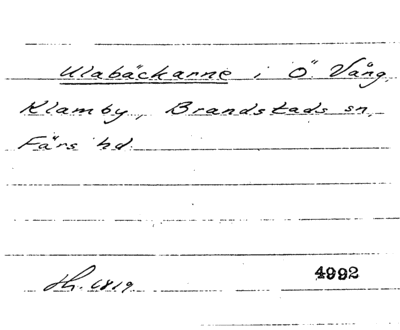 Ulabäckarne i Ö. Vång,
Klamby, Brandstads sn,
Färs hd
Hh. 6819 4992